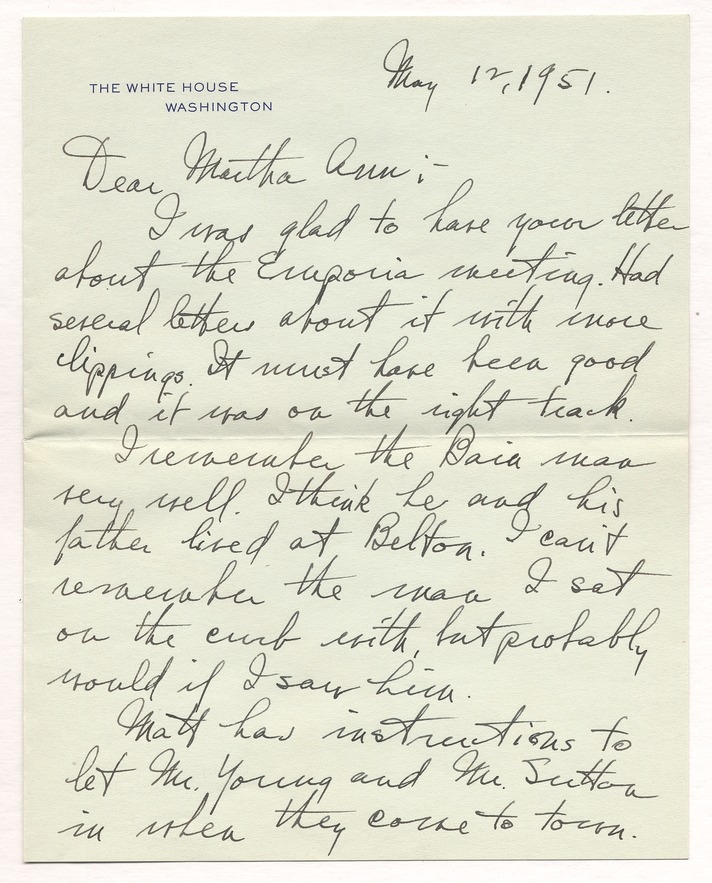 THE WHITE HOUSE
WASHINGTON
May 12, 1951.
Dear Martha Ann:-
I was glad to have your letter
about the Emporia meeting. Had
several letters about it with more
clippings. It must have been good
and it was on the right track.
I remember the Bain man
very well. I think he and his
father lived at Belton. I can't
remember the man I sat
on the curb with, but probably
would if I saw him.
Matt has instructions to
let Mr. Young and Mr. Sutton
in when they come to town.